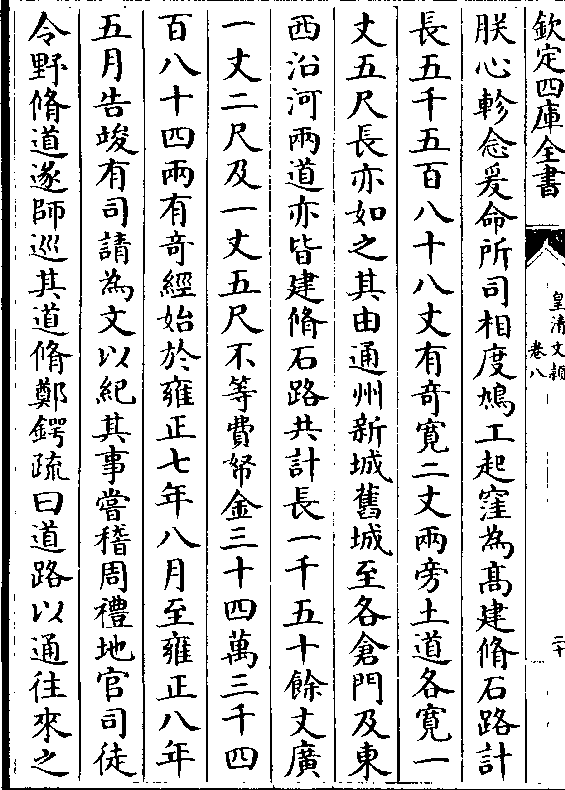 欽定四庫全書
皇清文穎
卷八
二十
朕心軫念爰命所司相度鳩工起窪為髙建脩石路計
長五千五百八十八丈有奇寛二丈兩旁土道各寛一
丈五尺長亦如之其由通州新城舊城至各倉門及東
西沿河兩道亦皆建脩石路共計長一千五十餘丈廣
一丈二尺及一丈五尺不等費帑金三十四萬三千四
百八十四兩有奇經始於雍正七年八月至雍正八年
五月告竣有司請為文以紀其事嘗稽周禮地官司徒
令野脩道遂師巡其道脩鄭鍔疏曰道路以通往來之